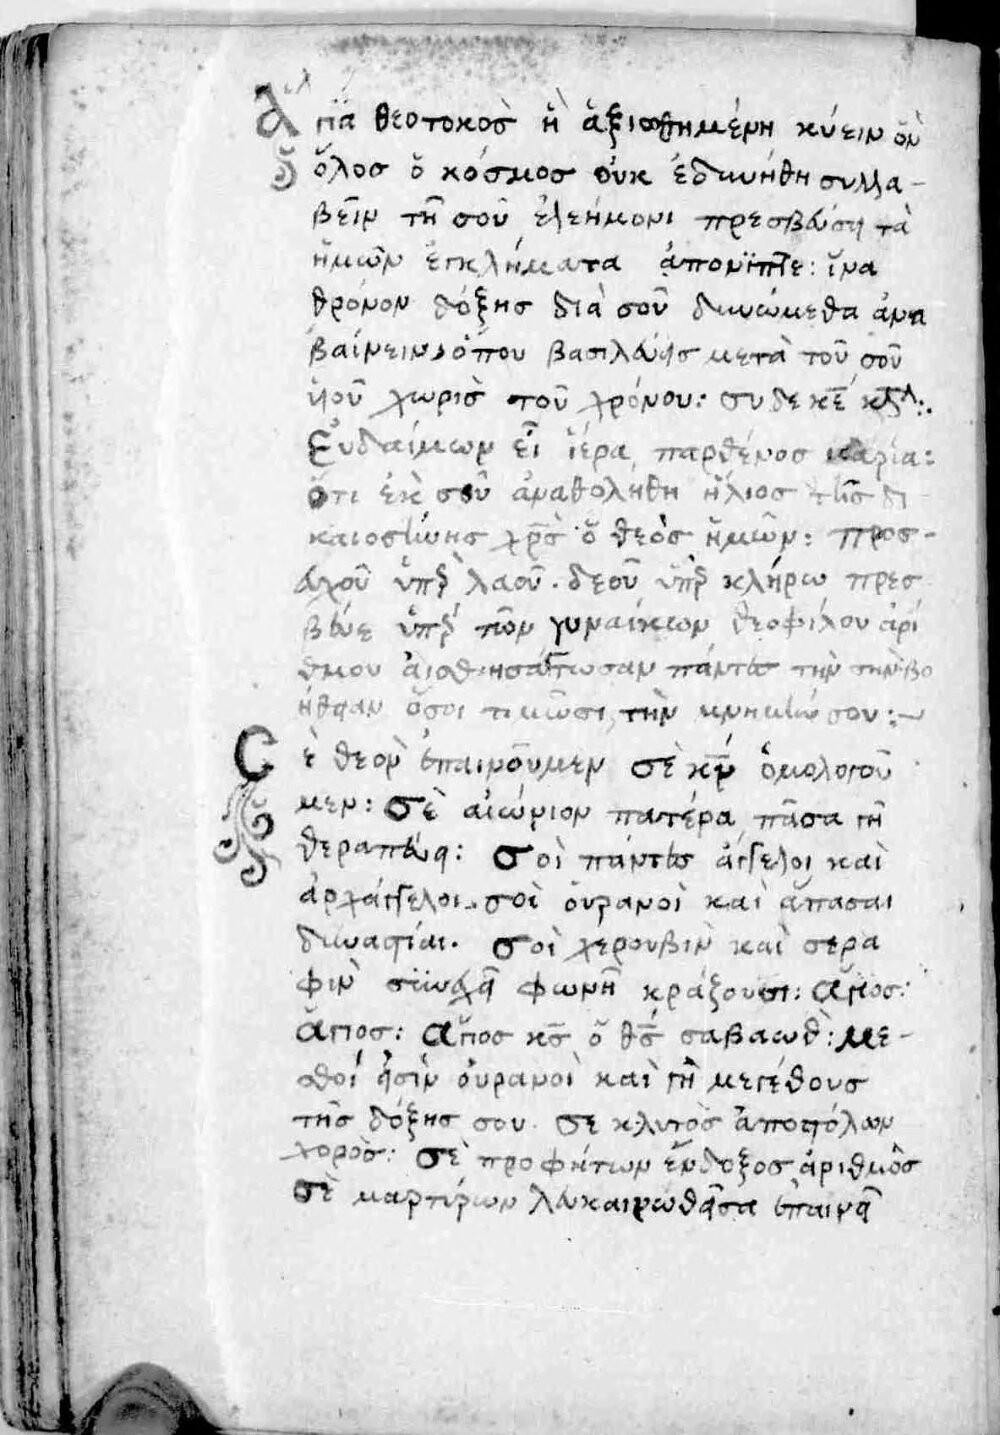 Ἁγϊα θεοτοκὸσ ἣ ἀξιωθημένη κύειν ὅν
ὅλοσ ὅ κόσμοσ οὐκ ἐδυνήθη συλλα-
βεῖν τῆ σοῦ ἐλεήμονι πρεσβεύσει τὰ
ἡμῶν ἐγκλήματα ἀπονϊπτε: ἵνα
θρόνον δόξησ διὰ σοῦ δυνώμεθα ἀνα
βαίνειν, ὅπου βασιλεύεισ μετὰ τοῦ σοῦ
ὑιοῦ χωρὶσ τοῦ χρόνου: συ δε κε̅ κτλ:.
Εὐδαίμων εἶ ἱερα παρθένοσ μαρία:
ὅτι ἐκ σοῦ ἀναθοληθη ἥλιοσ τῆσ δι
καιοσύνησ χρ̅σ ὁ θεὸσ ἡμῶν: προσ-
εύχου ὑπὲρ λαοῦ. δεοῦ ὑπὲρ κλήρω πρεσ
βευε ὑπὲρ τῶν γυναίκων θεοφίλου ἀρί
θμου ἀισθησάτωσαν πάντεσ τὴν σὴν βο
ήθειαν ὅσοι τιμῶσι τὴν μνημεύ σου:~
Σὲ θεὸν ἐπαινοῦμεν σὲ κν̅ ὁμολογοῦ
μεν: σὲ αἰώνιον πατέρα πᾶσα γῆ
θεραπεύει: σοὶ πάντεσ ἄγγελοι καὶ
ἀρχάγγελοι. σοὶ ὀυρανοὶ καὶ ἅπασαι
δυναστίαι. σοὶ χερουβὶν καὶ σερα
φὶν συϊωχεῖ φωνῆ κράζουσι: ἅγιοσ:
ἅγιοσ: ἅγιοσ κς̅ ὅ θς̅ σαβαωθ: με-
σθοί εἰσὶν ὀυρανοὶ καὶ γῆ μεγέθουσ
τῆσ δόξησ σου. σε κλυτὸσ ἀποστόλων
χορὸσ: σὲ προφήτων ἔνδοξοσ ἀριθμὸσ
σὲ μαρτίρων λευκαινωθεῖσα ἐπαινεῖ